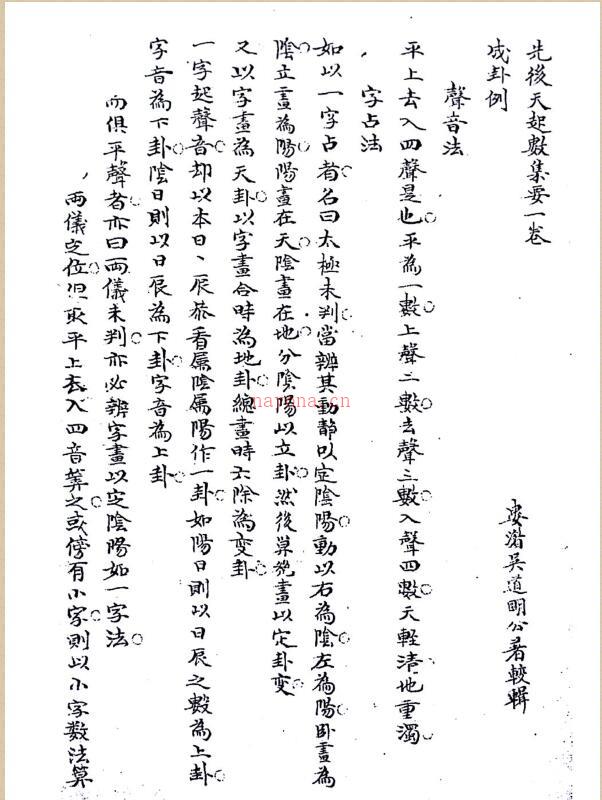 先後天起數集要一卷
婁湝吳道明公著較輯
成卦例
聲音法
平上去入四聲是也平為一數上聲二數去聲三數入聲四數天輕清地重濁
字占法
如以一字占者名曰太極未判當辨其動靜以定陰陽動以右為陰左為陽卧畫為
陰立畫為陽陽畫在天陰畫在地分陰陽以立卦然後算總畫以定卦變
又以字畫為天卦以字畫合時為地卦總畫時六除為變卦
一字起聲音却以本日、辰叅看屬陰屬陽作一卦如陽日則以日辰之數為上卦
字音為下卦陰日則以日辰為下卦字音為上卦
兩俱平聲者亦曰兩儀未判亦必辨字畫以定陰陽如一字法
兩儀定位但取平上去入四音筭之或傍有小字則以小字數法算
nayona.cn